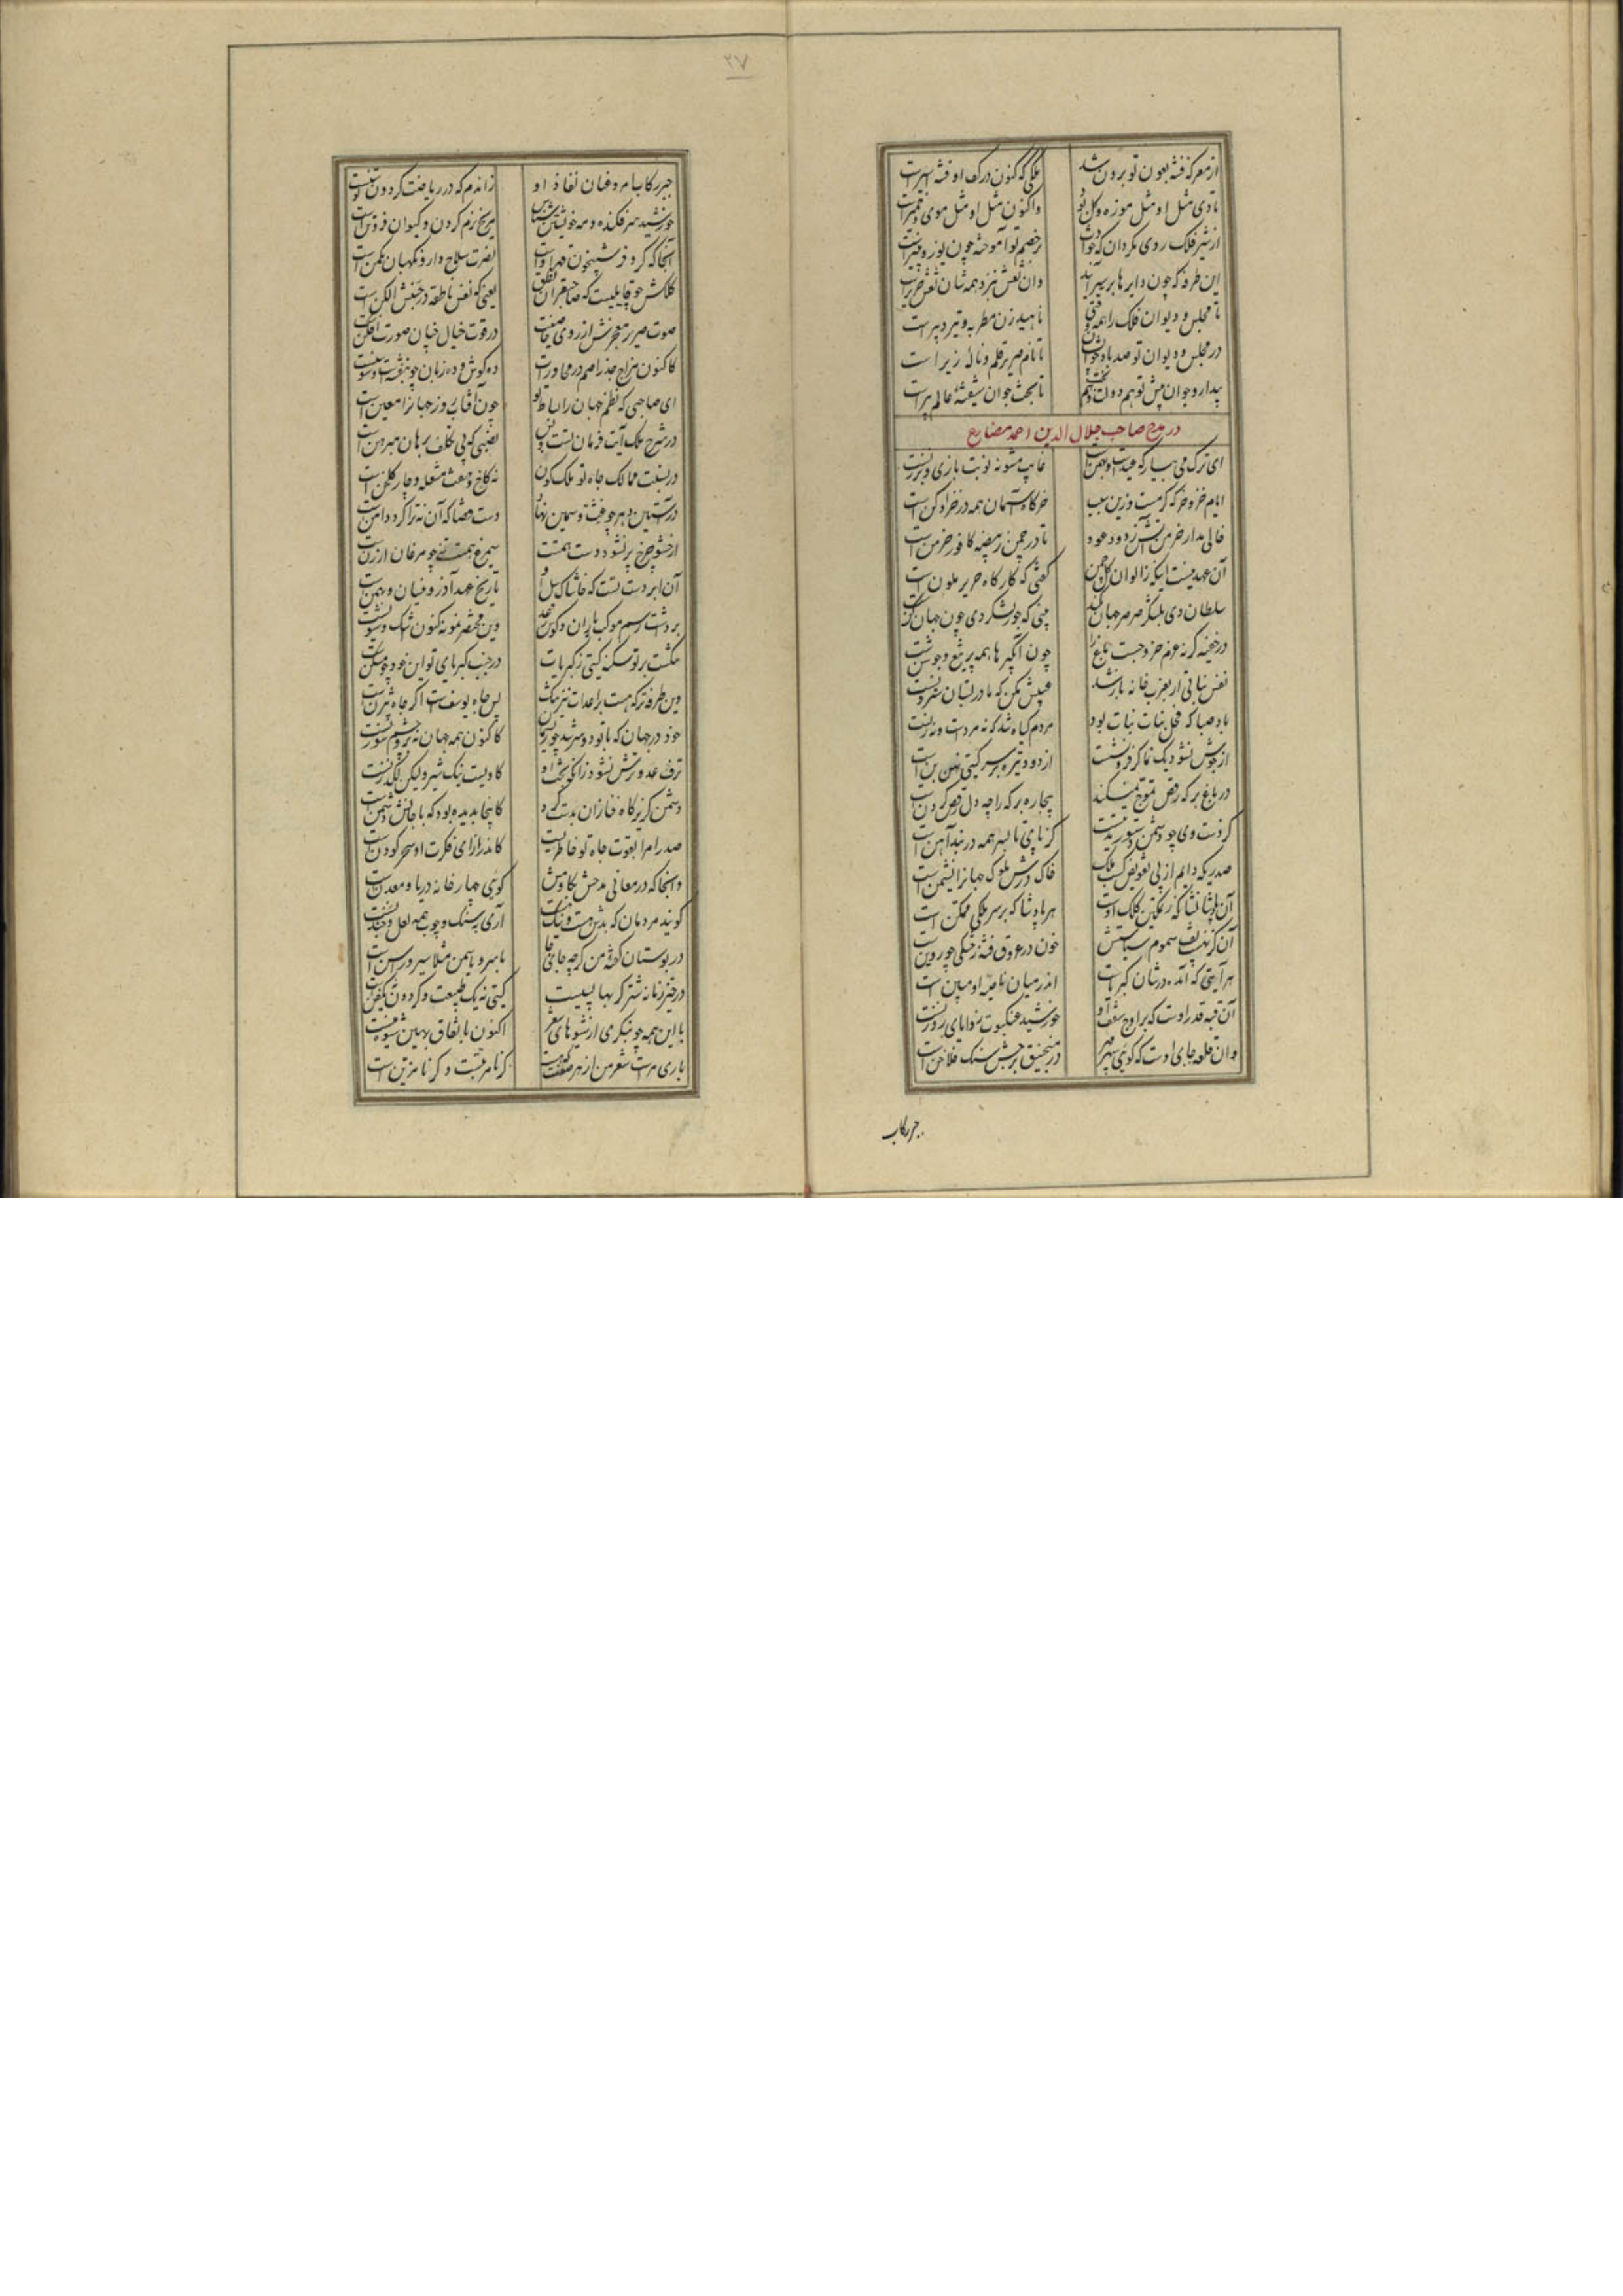 ۲۷
از معرکه فتنه بعون تو برون شد ملکی که کنون در کف او فتنه اسیرست
تا دی مثل او مثل موزه و گل بود واکنون مثل او مثل موی و خمیرست
از شیر فلک روی مگردان که حوادث بر خصم تو آموخته چون یوز و پنیرست
این طرفه که چون دایرها بر سر آبند وان نعش نیز در همه شان نقش حریرست
تا مجلس و دیوان فلک را همه وقتی ناهید زن مطربه و تیر دبیرست
در مجلس و دیوان تو صد باد چو ایشان تا نام صریر قلم و ناله زیر است
بیدار و جوان پیش تو هم دولت و هم بخت تا بخت جوان شیفته عالم پیرست
در مدح صاحب جلال الدین احمد مضارع
ای ترک می بیار که عیدست و بهمن است غایب مشو نه نوبت بازی و برزنست
ایام خز و خرگه گرمست و زین سبب خرگاه آسمان همه در خز ادکن است
خالی مدار خرمن آتش ز دود عود تا در چمن ز بیضه کافور خرمن است
آن عهد نیست اینکه ز الوان گل چمن گفتی که کارگاه حریر ملون است
سلطان دی بلشکر صرصر جهان بکند بینی که جور لشکر دی چون جهان کنست
در خفیه گر نه عزم خروجست باغ را چون آبگیرها همه پر تیغ و جوشنست
نفس نباتی ار بعزب خانه باز شد عیبش مکن که مادر بستان سترونست
باد صبا که فحل بنات نبات بود مردم گیاه شد که نه مردست و نه زنست
از جوش نشو دیک نما کز فرو نشست از دود تیره بر سر گیتی نهنبن است
در باغ برکه رقص تموج نمیکند بیچاره برکه را چه دل رقص کردن است
کز دست وی چو دشمن دستور نیست کز پای تا بسر همه در بند آهن است
صدری که دایم از پی تفویض کسب ملک خاک درش ملوک جهان را نشیمن است
آن پادشا نشان که ز تمکین کلک اوست هر پادشا که بر سر ملکی ممکن است
آن کز نهیب تف سموم سیاستش خون در عروق فتنه ز خشکی چو روین است
هر آیتی که آمده در شان کبریاست اندر میان ناصیه او مبین است
آن قبه قدر اوست که بر اوج سقف او خورشید عنکبوت زوایای روزنست
وان قلعه جای اوست که گوی سپهر در منجنیق برجش سنگ فلاخن است
جبر رکاب
جبر رکاب امر و عنان نفاذ او زاندم که در ریاضت گردون توسنست
خورشید سر فکنده و مه خویشتن شناس مریخ نرم گردن و کیوان فروتن است
آنجا که کر و فر شبیخون قهر اوست نصرت سلاح دار و نگهبان مکمن است
کلکش چو قابلیست که صاحب قران نطق یعنی که نفس ناطقه در جنبش الکن است
صوت صریر معجزش از روی خاصیت در قوت خیال چنان صورت افکن است
کاکنون مزاج جذر اصم در محاورات ده گوش و ده زبان چو بنفشه و سوسن است
ای صاحبی که نظم جهان را بساط تو چون آفتاب روز جهانرا معین است
در شرح ملک آیت فرمان تست و بس نصبی که بی تکلف برهان مبرهن است
در نسبت ممالک جاه تو ملک کون نه کاخ و هفت مشعله و چار گلخن است
در آستین دهر چو غث و سمین نهاد دست قضا که آن نه ترا گرد دامنست
از حشو چرخ پر نشود دست همتت سیمرغ همتست نه چو مرغان ارزن است
آن ابر دست تست که خاشاک سیل او تاریخ عهد آذر و نیسان و بهمن است
بر دشت رسم موکب باران و کوس رعد وین مختصر نمونه کنون اشک و شیونست
تنگست بر تو سکنه گیتی ز کبریات در جنب کبریای تو این خود چه مسکن است
وین طرفه تر که هست بر اعدات نیز تنگ پس چاه یوسف است اگر چاه بیژن است
خود در جهان که با تو دو سر شد چو ریسمان کاکنون همه جهان نه برو چشم سوزنست
ترف عدو ترش نشود زانکه بخت او گاویست نیک شیر ولیکن لگد زنست
دشمن گریزگاه فنا زان بدست کرد کانجا بدیده بود که با جانش دشمن است
صدرا مرا بقوت جاه تو خاطریست کاندر ازای فکرت او سحر کودن است
وانجا که در معانی مدحش بکاومش گویی جهار خانه دریا و معدن است
گویند مردمان که بدش هست و نیک هست آری به سنگ و چوب همه لعل و چندنست
در بوستان گفته من گرچه جای جای با سرو یاسمن مثلا سیر و راسن است
در حیز زمانه شتر گربها بسیست گیتی نه یک طبیعت و گردون نه یک فن است
با این همه چو بنگری از شیوهای شعر اکنون باتفاق بهین شیوه منست
باری مراست شعر من از هر صفت که هست گر نامرتبست و گر نامزین است